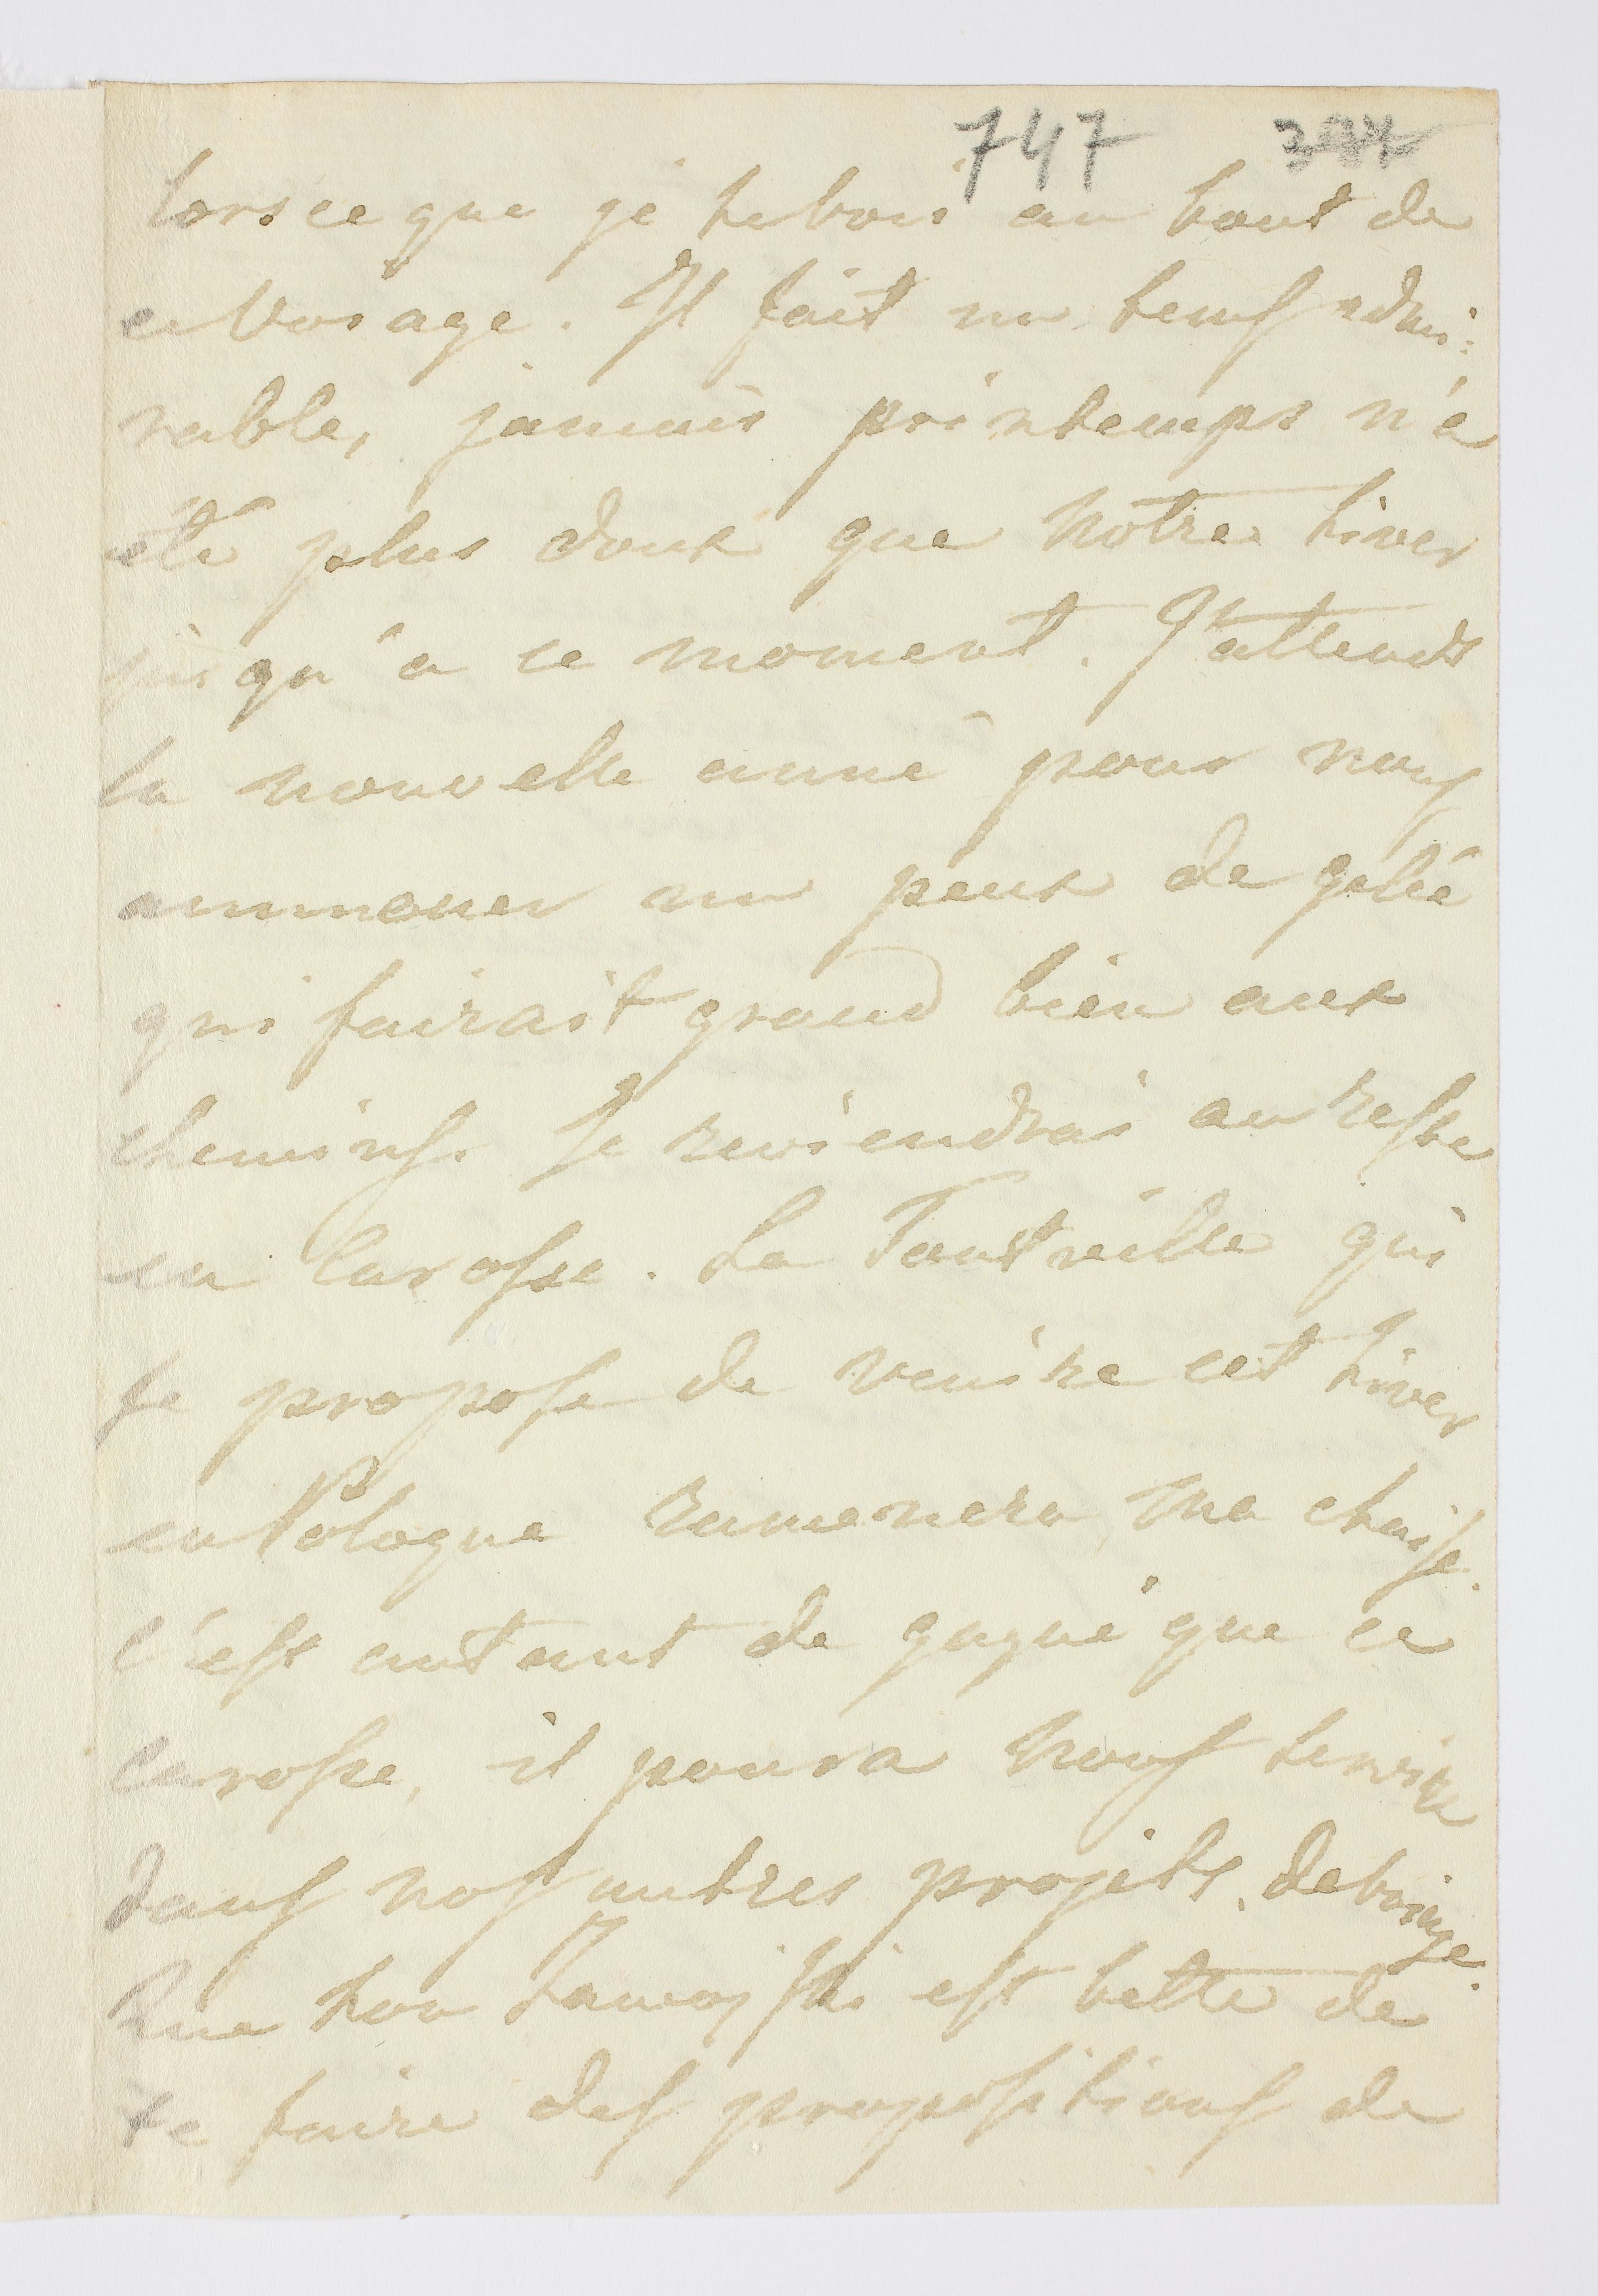 747 384
lorsce que je te vois au bout de
ce voiage. Il fait un temps admi:
rable, jamais printemps n'a
été plus doux que nôtre hiver
jusqu'a ce moment. J'attends
la nouvelle anné pour nous
ammener un peux de gelée
qui fairait grand bien aux
chemins. Je reviendrai au reste
en Carosse. La Tautreille qui
se propose de venire cet hiver
en Pologne ramenera ma chaise.
C'est autant de gagné que ce
carosse, il poura nous servire
dans nos autres projets. de voiage.
Que ton Zamoiski est bette de
te faire des propositions de